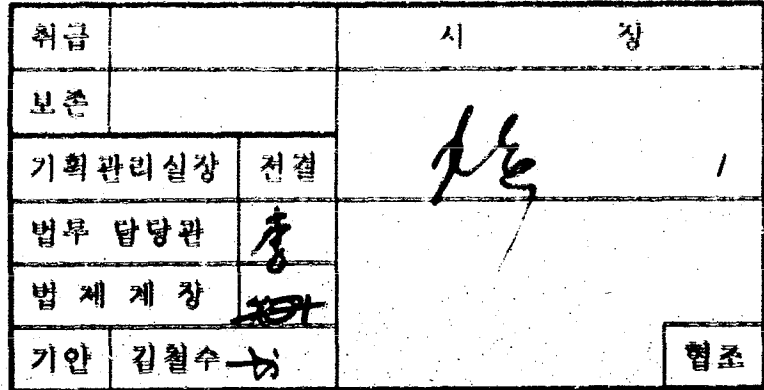 취급
시 장
보존
기획관리실장 전결
법무 담당관 李
법제계장
기안 김철수
협조